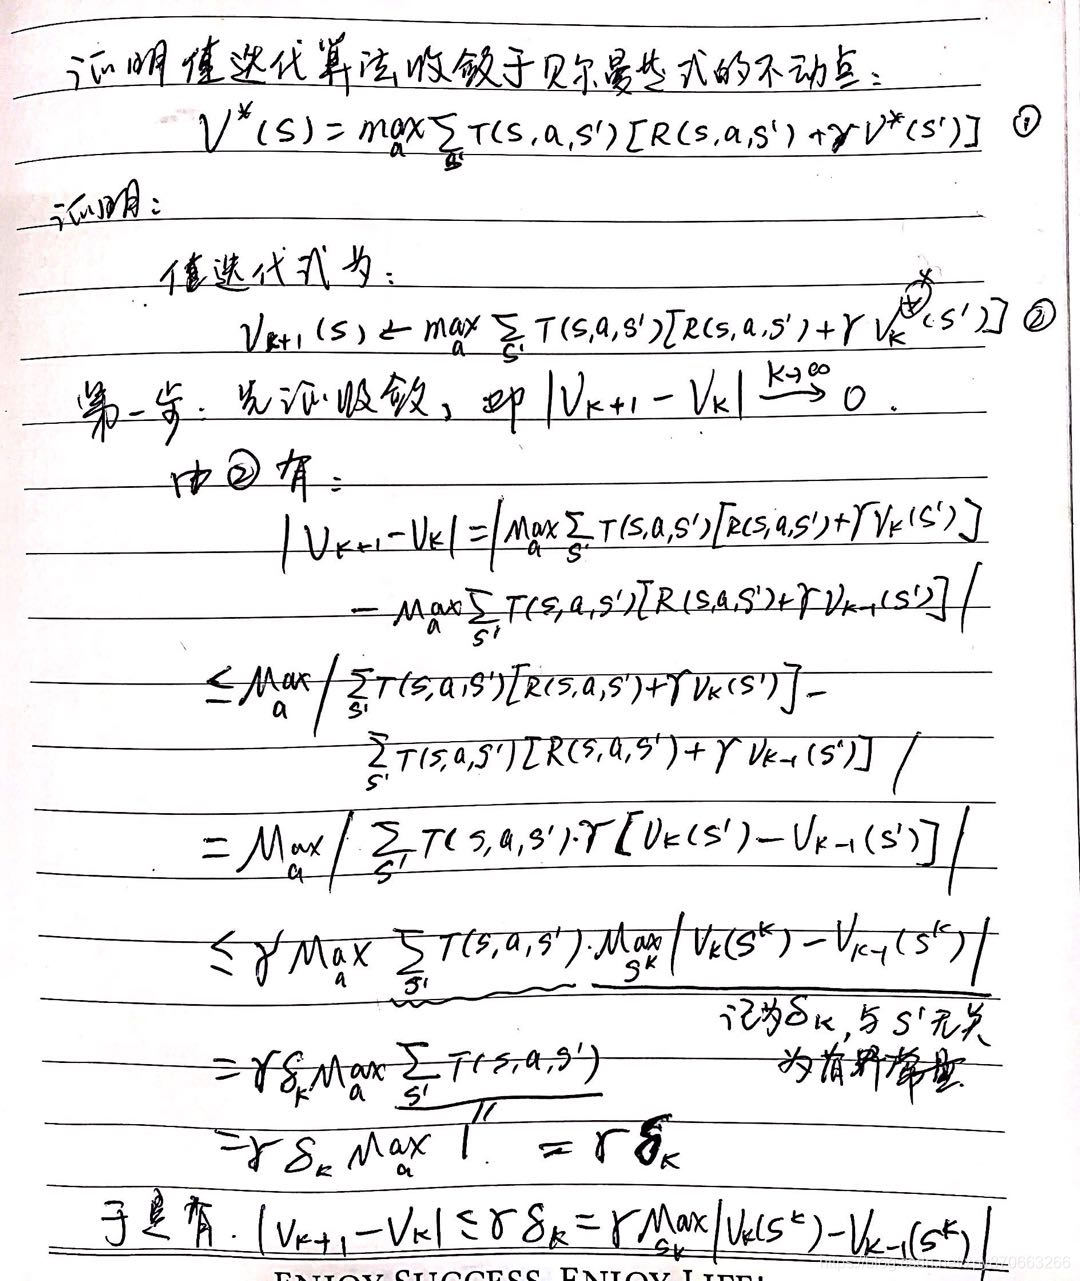 证明值迭代算法收敛于贝尔曼等式的不动点:
V*(S) = max_a Σ_{s'} T(S,a,S') [R(S,a,S') + γV*(S')] ①
证明:
值迭代式为:
V_{k+1}(S) ← max_a Σ_{s'} T(S,a,S')[R(S,a,S') + γ V_k^*(S')] ②
第一步: 先证收敛, 即 |V_{k+1} - V_k| \xrightarrow{k→∞} 0.
由②有:
|V_{k+1} - V_k| = |Max_a Σ_{s'} T(S,a,S')[R(S,a,S') + γV_k(S')]
- Max_a Σ_{s'} T(S,a,S')[R(S,a,S') + γV_{k-1}(S')]|
≤ Max_a | Σ_{s'} T(S,a,S')[R(S,a,S') + γV_k(S')] -
Σ_{s'} T(S,a,S')[R(S,a,S') + γV_{k-1}(S')] |
= Max_a | Σ_{s'} T(S,a,S')·γ[V_k(S') - V_{k-1}(S')] |
≤ γ Max_a Σ_{s'} T(S,a,S')·Max_{s^k} |V_k(S^k) - V_{k-1}(S^k)|
记为δ_k, 与S'无关
为有界常量
= γδ_k Max_a Σ_{s'} T(S,a,S')
= γδ_k Max_a 1 = γδ_k
于是有. |V_{k+1} - V_k| ≤ γδ_k = γ Max_{s_k} |V_k(S^k) - V_{k-1}(S^k)|
ENJOY SUCCESS, ENJOY LIFE!